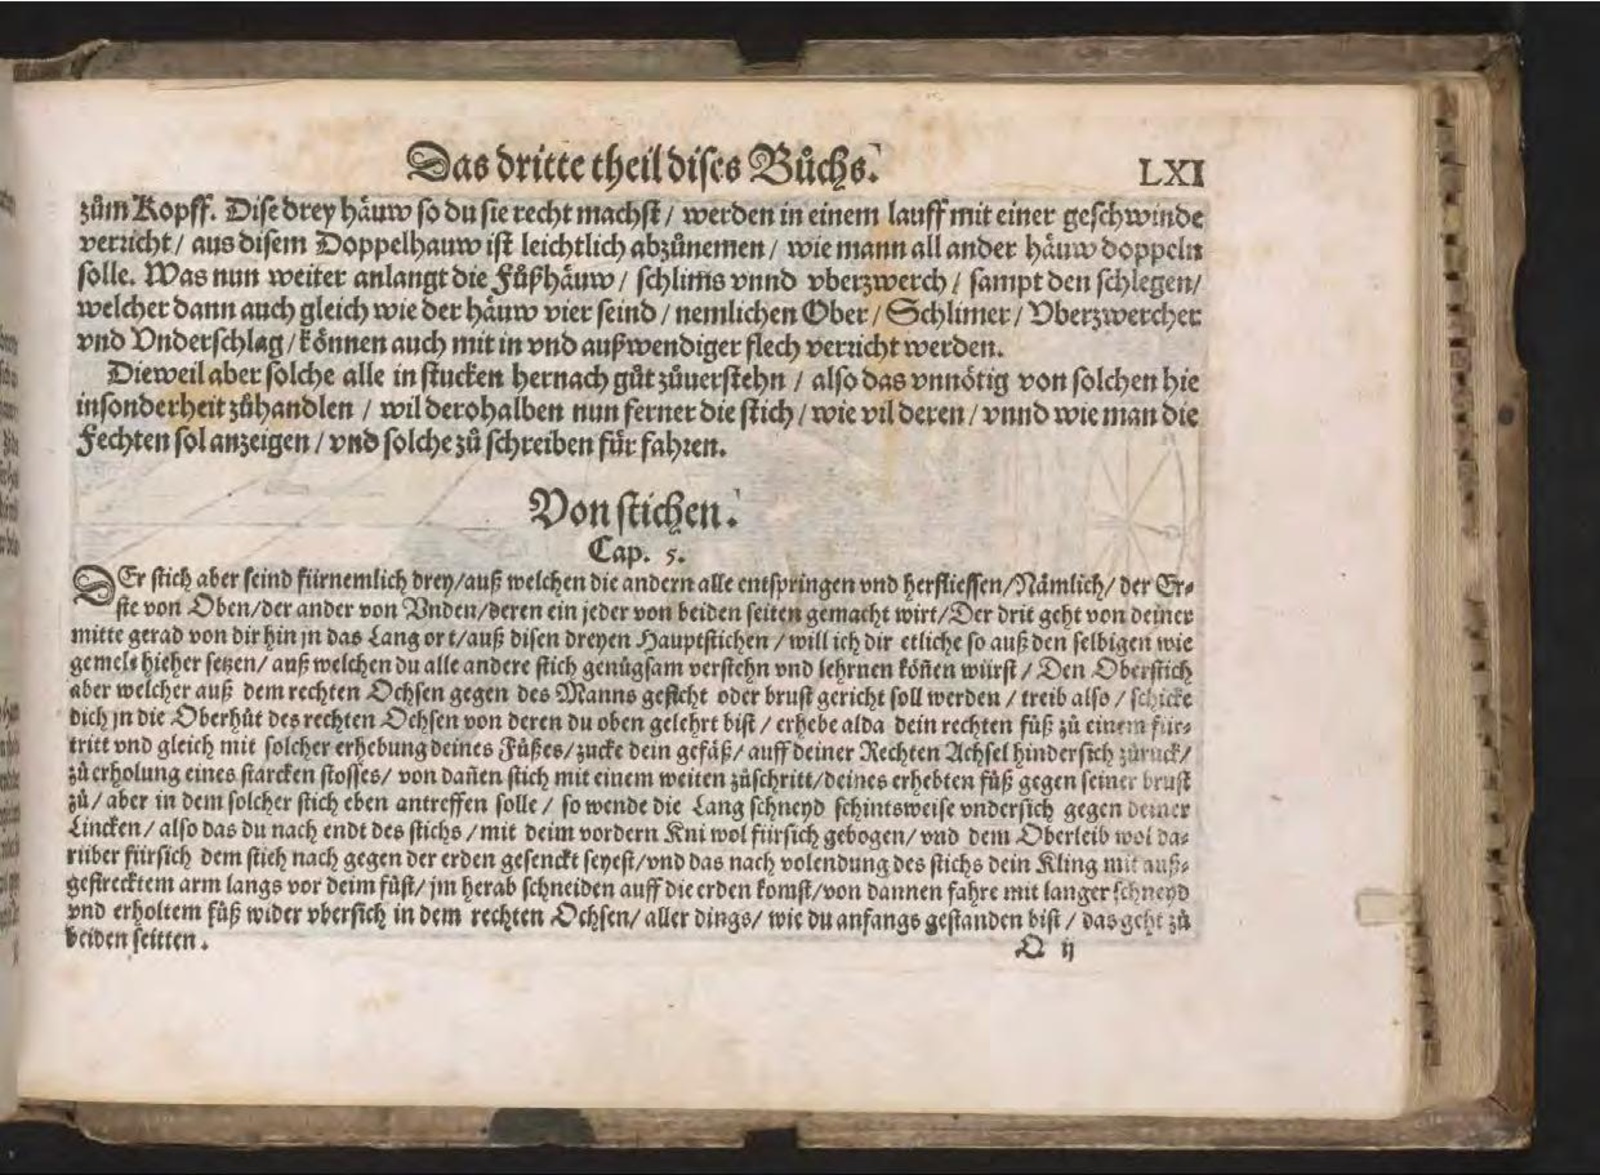 Das dritte theil dises Bůchs.
LXI
zům Kopff. Dise drey häuw so du sie recht machst / werden in einem lauff mit einer geschwinde
verricht / aus disem Doppelhauw ist leichtlich abzůnemen / wie mann all ander häuw doppeln
solle. Was nun weiter anlangt die Fůßhäuw / schlims vnnd vberzwerch / sampt den schlegen /
welcher dann auch gleich wie der häuw vier seind / nemlichen Ober / Schlimer / Vberzwercher
vnd Vnderschlag / können auch mit in vnd außwendiger flech verricht werden.
Dieweil aber solche alle in stucken hernach gůt zůuerstehn / also das vnnötig von solchen hie
insonderheit zůhandlen / wil derohalben nun ferner die stich / wie vil deren / vnnd wie man die
Fechten sol anzeigen / vnd solche zů schreiben für fahren.
Von stichen.
Cap. 5.
DEr stich aber seind fürnemlich drey / auß welchen die andern alle entspringen vnd herfliessen / Nämlich / der Er-
ste von Oben / der ander von Vnden / deren ein jeder von beiden seiten gemacht wirt / Der drit geht von deiner
mitte gerad von dir hin jn das Lang ort / auß disen dreyen Hauptstichen / will ich dir etliche so auß den selbigen wie
gemelt hieher setzen / auß welchen du alle andere stich genůgsam verstehn vnd lehrnen köñen würst / Den Oberstich
aber welcher auß dem rechten Ochsen gegen des Manns gesicht oder brust gericht soll werden / treib also / schicke
dich jn die Oberhůt des rechten Ochsen von deren du oben gelehrt bist / erhebe alda dein rechten fůß zů einem für-
tritt vnd gleich mit solcher erhebung deines Fůßes / zucke dein gefäß / auff deiner Rechten Achsel hindersich zůruck /
zů erholung eines starcken stosses / von dañen stich mit einem weiten zůschritt / deines erhebten fůß gegen seiner brust
zů / aber in dem solcher stich eben antreffen solle / so wende die Lang schneyd schintsweise vndersich gegen deiner
Lincken / also das du nach endt des stichs / mit deim vordern Kni wol fürsich gebogen / vnd dem Oberleib wol da-
rüber fürsich dem stich nach gegen der erden gesenckt seyest / vnd das nach volendung des stichs dein Kling mit auß-
gestrecktem arm langs vor deim fůß / jm herab schneiden auff die erden komst / von dannen fahre mit langer schneyd
vnd erholtem fůß wider vbersich in dem rechten Ochsen / aller dings / wie du anfangs gestanden bist / das geht zů
beiden seitten.
O ij